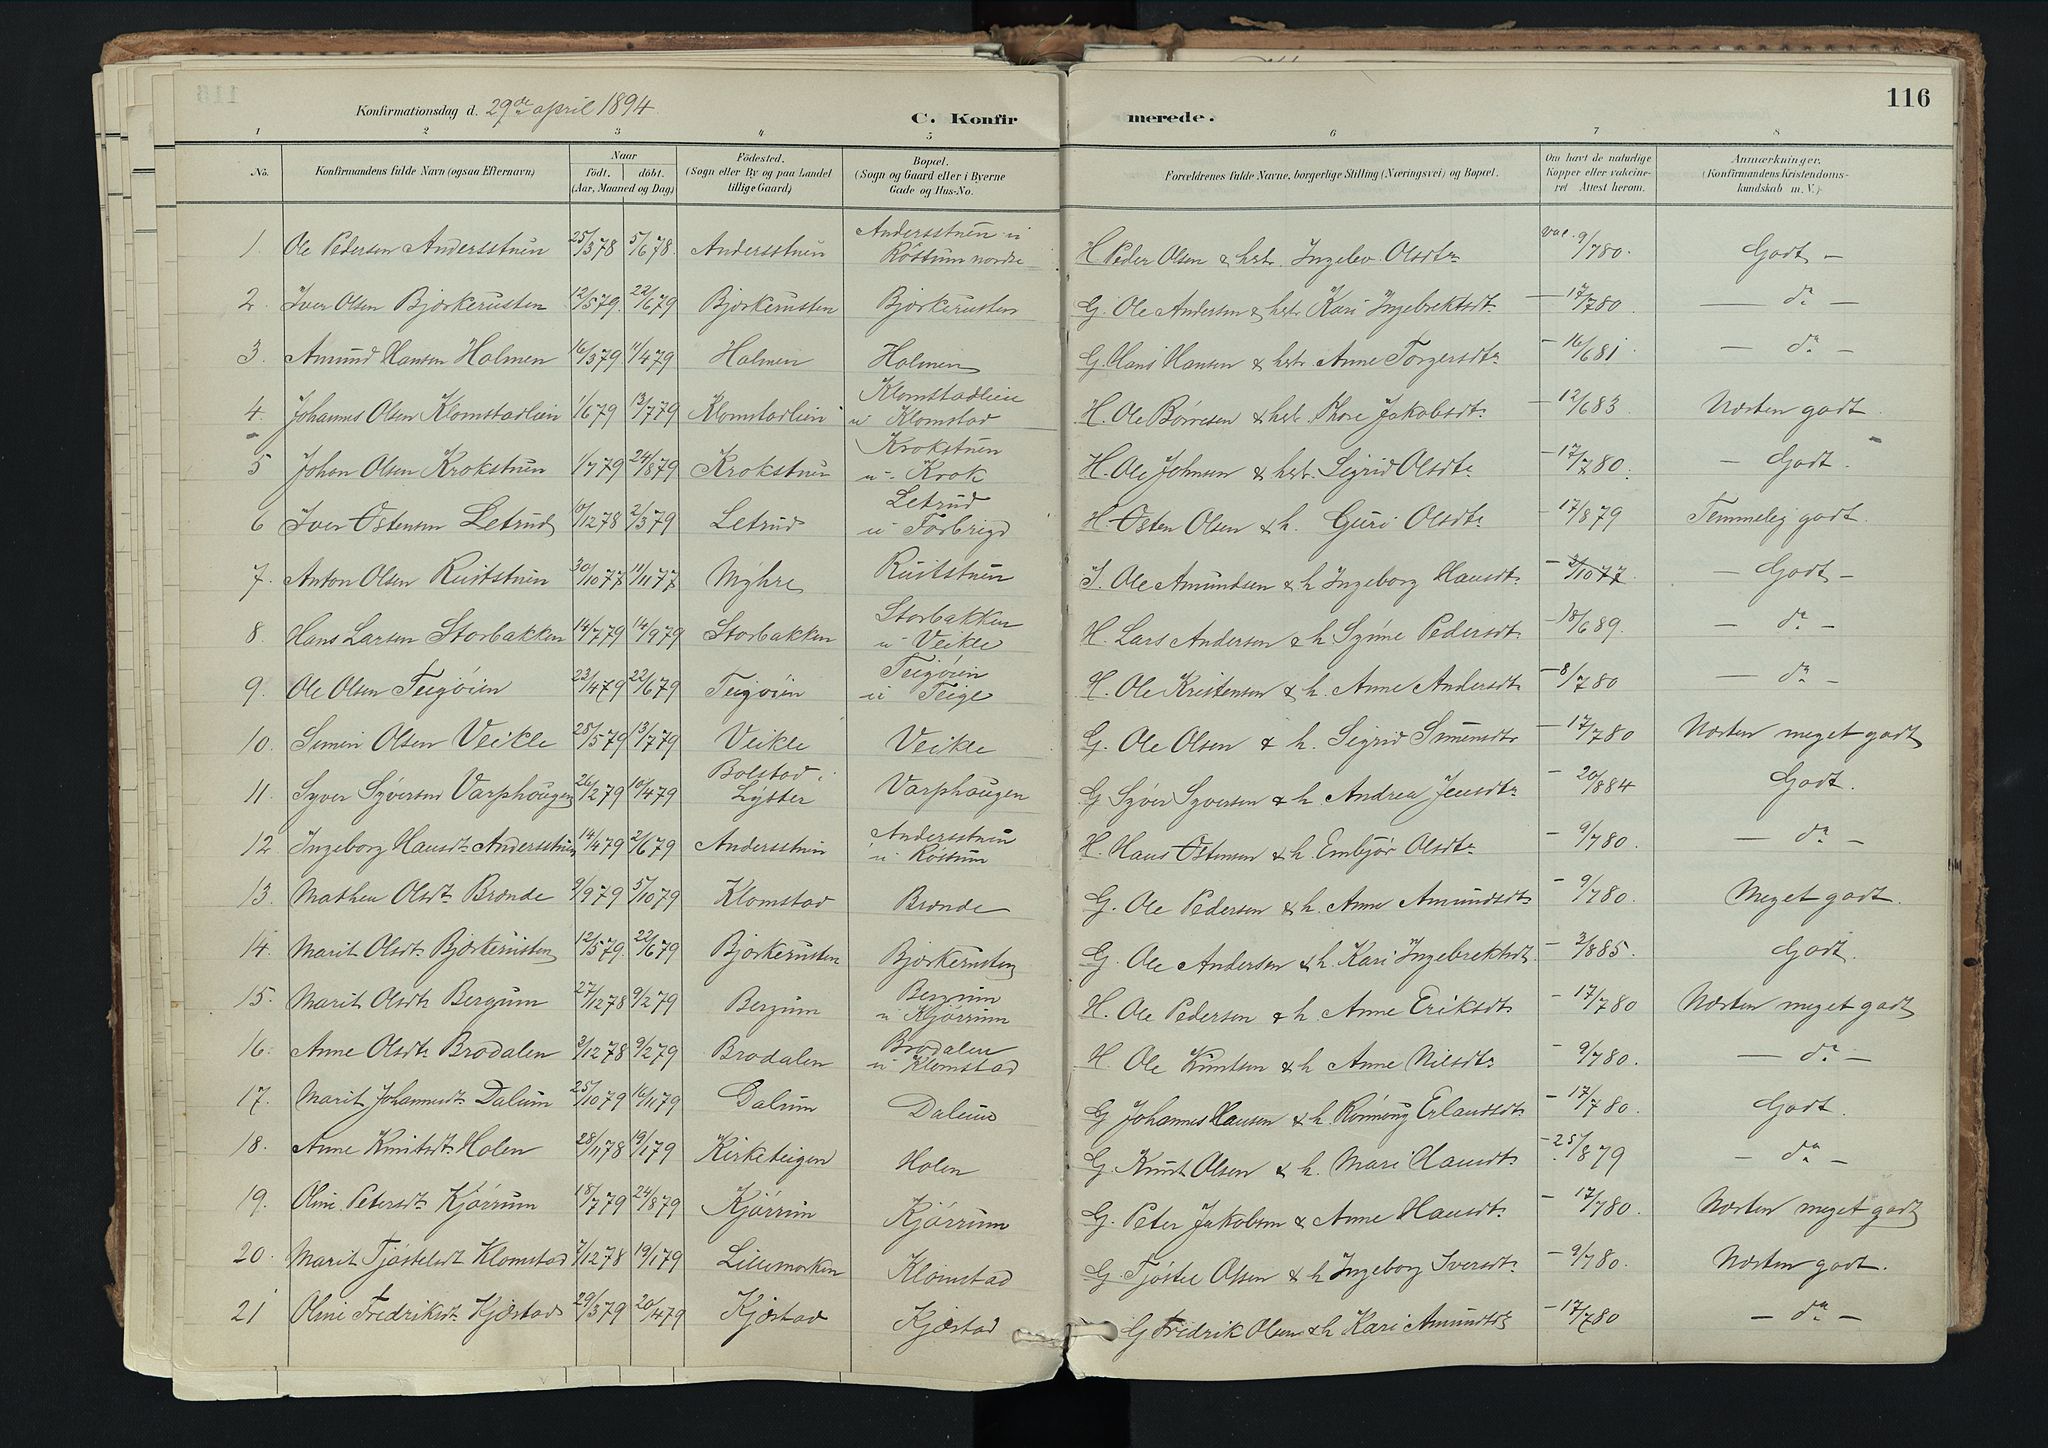 116
Konfirmationsdag d. 29de april 1894.
C. Konfir merede.
1 2 3 4 5 6 7 8
No. Konfirmandens fulde Navn (ogsaa Efternavn) Naar födt. döbt. (Aar, Maaned og Dag) Födested. (Sogn eller By og paa Landet tillige Gaard) Bopæl. (Sogn og Gaard eller i Byerne Gade og Hus-No. Forældrenes fulde Navne, borgerlige Stilling (Næringsvei) og Bopæl. Om havt de naturlige Kopper eller vakcineret Attest herom. Anmærkninger. (Konfirmandens Kristendomskundskab m. V.)
1. Ole Pedersen Andersstuen 25/3 78 5/6 78. Andersstuen Andersstuen u Röstum nordre H Peder Olsen & hst. Ingeb. Olsdtr vac. 9/7 80. Godt –
2. Iver Olsen Bjørkerusten 12/5 79. 22/6 79 Bjørkerusten Bjørkerusten G. Ole Andersen & hst. Kari Ingebrektsdt. – 17/7 80. – do –
3. Amund Hansen Holmen 16/3 79 11/4 79 Holmen Holmen G. Hans Hansen & hst. Anne Torgersdtr – 16/6 81. – do –
4. Johannes Olsen Klomstadlien 1/6 79 13/7 79 Klomstadlien Klomstadlien u Klomstad H. Ole Börresen & hst. Thore Jakobsdtr – 12/6 83 Næsten godt.
5 Johan Olsen Krokstuen 1/7 79 24/8 79 Krokstuen Krokstuen u. Krok H. Ole Johnsen & hst. Sigrid Olsdtr – 17/7 80. – Godt.
6 Iver Østensen Letrud 10/12 78 2/3 79 Letrud Letrud u Forbrigd H. Østen Olsen & h. Guri Olsdtr – 17/8 79 Temmelig godt.
7. Anton Olsen Ruststuen 30/10 77 11/11 77 Myhre Ruststuen I. Ole Amundsen & h Ingeborg Hansdtr – 3/10 77. – Godt –
8. Hans Larsen Storbakken 14/7 79 14/9 79 Storbakken Storbakken u Veikle H. Lars Andersen & h Synne Pedersdtr – 18/6 89. – do –
9. Ole Olsen Teigøien 23/4 79 22/6 79 Teigøien Teigøien u Teige H. Ole Kristensen & h. Anne Andersdtr – 8/7 80 – do –
10. Simen Olsen Veikle 28/5 79 13/7 79 Veikle Veikle G. Ole Olsen & h. Sigrid Simensdtr – 17/7 80 Næsten meget godt
11. Syver Syversen Varphougen 26/2 79 10/4 79 Bolstad i Lyster Varphougen G Syver Syversen & h. Andrea Jensdtr – 20/8 84 Godt.
12. Ingeborg Hansdtr Andersstuen 14/4 79 2/6 79 Andersstuen Andersstuen u Röstum H. Hans Østensen & h. Embjør Olsdtr – 9/7 80. – do –
13. Mathea Olsdtr Brænde 9/9 79 5/10 79 Klomstad Brænde G. Ole Pedersen & h. Anne Amundsdtr – 9/7 80. Meget godt.
14. Marit Olsdtr Bjørkerusten 12/5 79. 22/6 79 Bjørkerusten Bjørkerusten G. Ole Andersen & h. Kari Ingebrektsdt. – 3/8 85. Godt.
15. Marit Olsdtr Bergum 27/12 78 9/2 79 Bergum Bergum u Kjørrum H. Ole Pedersen & h. Anne Eriksdtr – 17/7 80 Næsten meget godt
16. Anne Olsdtr Brodalen 3/12 78 9/2 79 Brodalen Brodalen u Klomstad H. Ole Knutsen & h. Anne Nilsdtr – 9/7 80. – do –
17. Marit Johannesdtr Dalum 25/10 79 16/11 79 Dalum Dalum G Johannes Hansen & h. Rønnaug Erlandsdtr – 17/7 80. Godt.
18. Anne Knutsdtr Holen 28/11 78 19/1 79 Kirketeigen Holen G. Knut Olsen & h. Mari Hansdtr – 25/8 79 – do –
19. Oline Petersdtr Kjørrum 18/7 79 24/8 79 Kjørrum Kjørrum G. Peter Jakobsen & Anne Hansdtr – 17/7 80. Næsten meget godt
20. Marit Tjøstelsdt Klomstad 7/12 78 19/1 79 Lillemorken Klomstad G Tjøstel Olsen & h Ingeborg Iversdtr – 9/7 80. Næsten godt.
21 Oline Fredriksdt. Kjæstad 29/3 79 20/4 79 Kjæstad Kjæstad G Fredrik Olsen & h Kari Amundsdt – 17/7 80 – do –